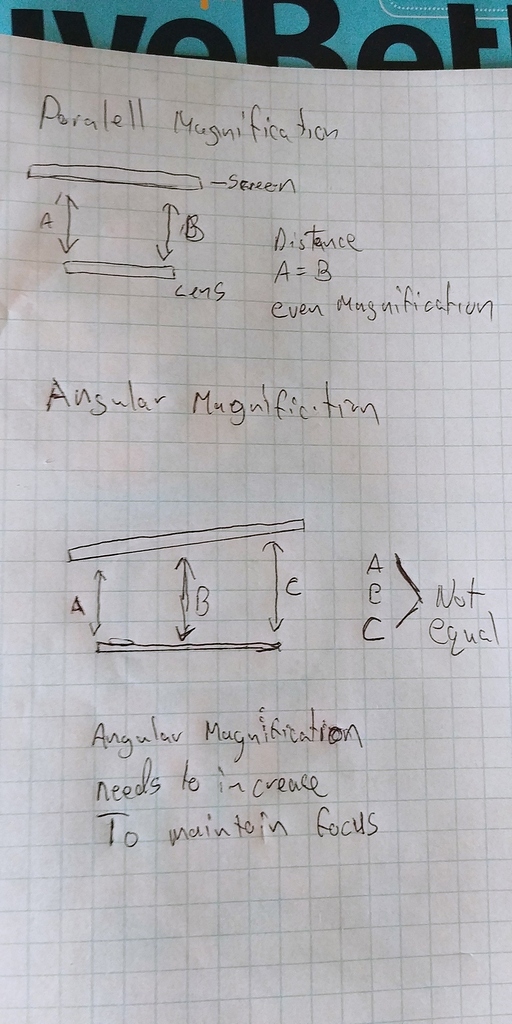 Paralell Magnification
Screen
A
B
Lens
Distance
A = B
even Magnification
Angular Magnification
A
B
C
A
B
C
Not
equal
Angular Magnification
needs to increase
To maintain focus